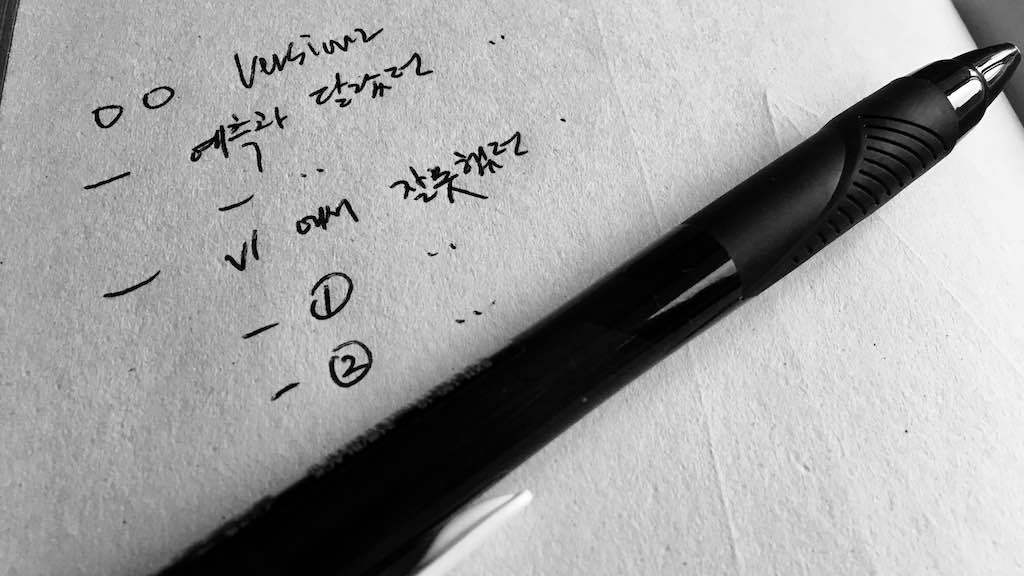 ○○ Version2
- 예측과 달랐던 ..
- ..
- V1 에서 잘못했던 .
- ① ..
- ② ...